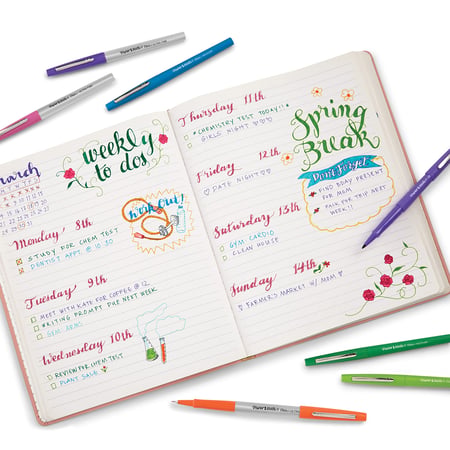 March
weekly
to dos
Monday 8th
STUDY FOR CHEM TEST
DENTIST APPT. @ 10:30
Work Out!
Tuesday 9th
MEET WITH KATE FOR COFFEE @ 12
WRITING PROMPT DUE NEXT WEEK
GYM: ARMS
Wednesday 10th
REVIEW FOR CHEM TEST
PLANT SALE
Thursday 11th
CHEMISTRY TEST TODAY!!
GIRLS NIGHT
Friday 12th
DATE NIGHT
Saturday 13th
GYM: CARDIO
CLEAN HOUSE
Sunday 14th
FARMER'S MARKET W/ MOM
Spring
Break
Don't Forget
FIND 2DAY PRESENT
FOR MOM
PACK FOR TRIP NEXT
WEEK!!
Paper Mate
Paper Mate
Paper Mate
Paper Mate
Paper Mate
Paper Mate
Paper Mate